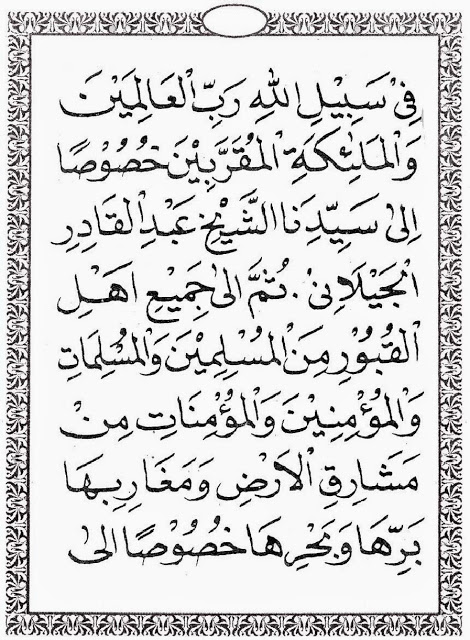 فِيْ سَبِيْلِ اللهِ رَبِّ الْعَالَمِيْنَ
وَالْمَلٰئِكَةِ الْمُقَرَّبِيْنَ خُصُوْصًا
اِلىٰ سَيِّدِنَا الشَّيْخِ عَبْدِ الْقَادِرِ
الْجَيْلَانِيْ. ثُمَّ اِلىٰ جَمِيْعِ اَهْلِ
الْقُبُوْرِ مِنَ الْمُسْلِمِيْنَ وَالْمُسْلِمَاتِ
وَالْمُؤْمِنِيْنَ وَالْمُؤْمِنَاتِ مِنْ
مَشَارِقِ الْاَرْضِ وَمَغَارِبِهَا
بَرِّهَا وَبَحْرِهَا خُصُوْصًا اِلىٰ